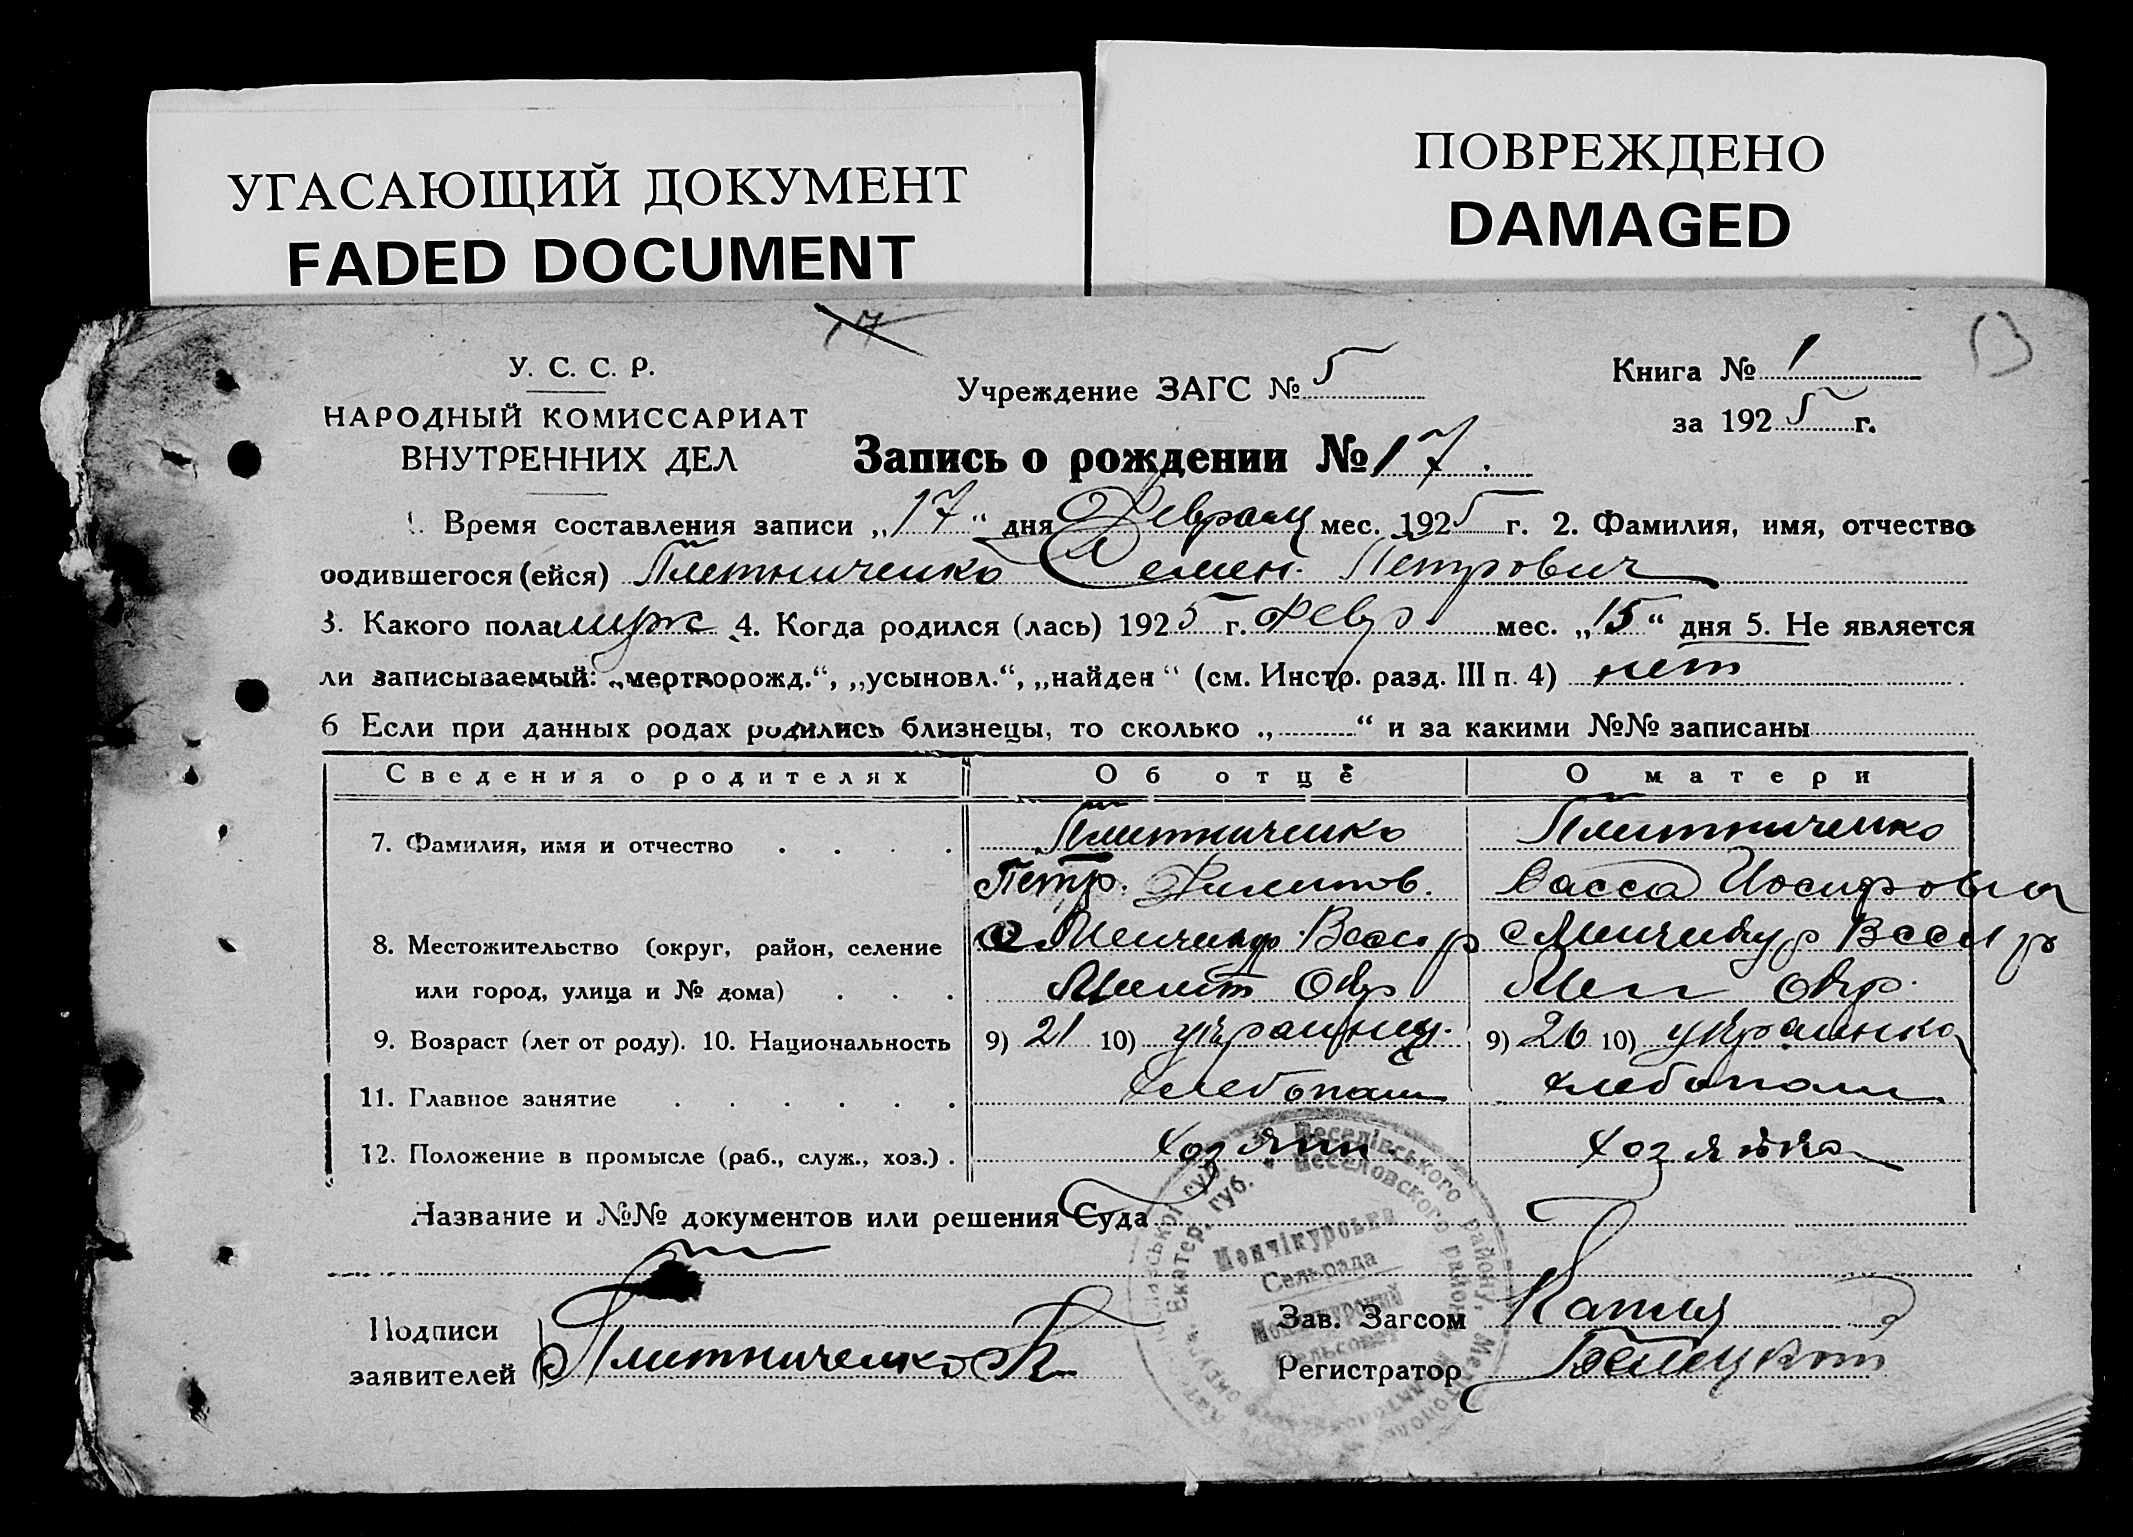 УГАСАЮЩИЙ ДОКУМЕНТ
FADED DOCUMENT
ПОВРЕЖДЕНО
DAMAGED
17
У. С. С. Р.
НАРОДНЫЙ КОМИССАРИАТ
ВНУТРЕННИХ ДЕЛ
Учреждение ЗАГС № 5
Книга № 1
за 1925 г.
13
Запись о рождении № 17.
1. Время составления записи „17“ дня Февраля мес. 1925 г. 2. Фамилия, имя, отчество
родившегося (ейся) Плетниченко Семен Петрович
3. Какого пола муж 4. Когда родился (лась) 1925 г. Февр мес. „15“ дня 5. Не является
ли записываемый: „мертворожд.“, „усыновл.“, „найден“ (см. Инстр. разд. III п. 4) нет
6 Если при данных родах родились близнецы, то сколько „ “ и за какими №№ записаны
Сведения о родителях Об отце О матери
7. Фамилия, имя и отчество Плитниченко Плитниченко
Петр. Филитов. Васса Иосифовна
8. Местожительство (округ, район, селение с Менчикур с Менчикур
или город, улица и № дома) Мелит Окр Мел Окр.
9. Возраст (лет от роду). 10. Национальность 9) 21 10) украинец. 9) 26 10) украинка
11. Главное занятие хлебопаш хлебопаш
12. Положение в промысле (раб., служ., хоз.) хозяин хозяйка
Название и №№ документов или решения Суда
Веселівського району, Мелітопол
Екатер. губ. Веселовского района,
Менчікурська
Сельрада
Менчикурский
Сельсовет
Подписи
заявителей Плитниченко
Зав. Загсом
Регистратор Белецкий